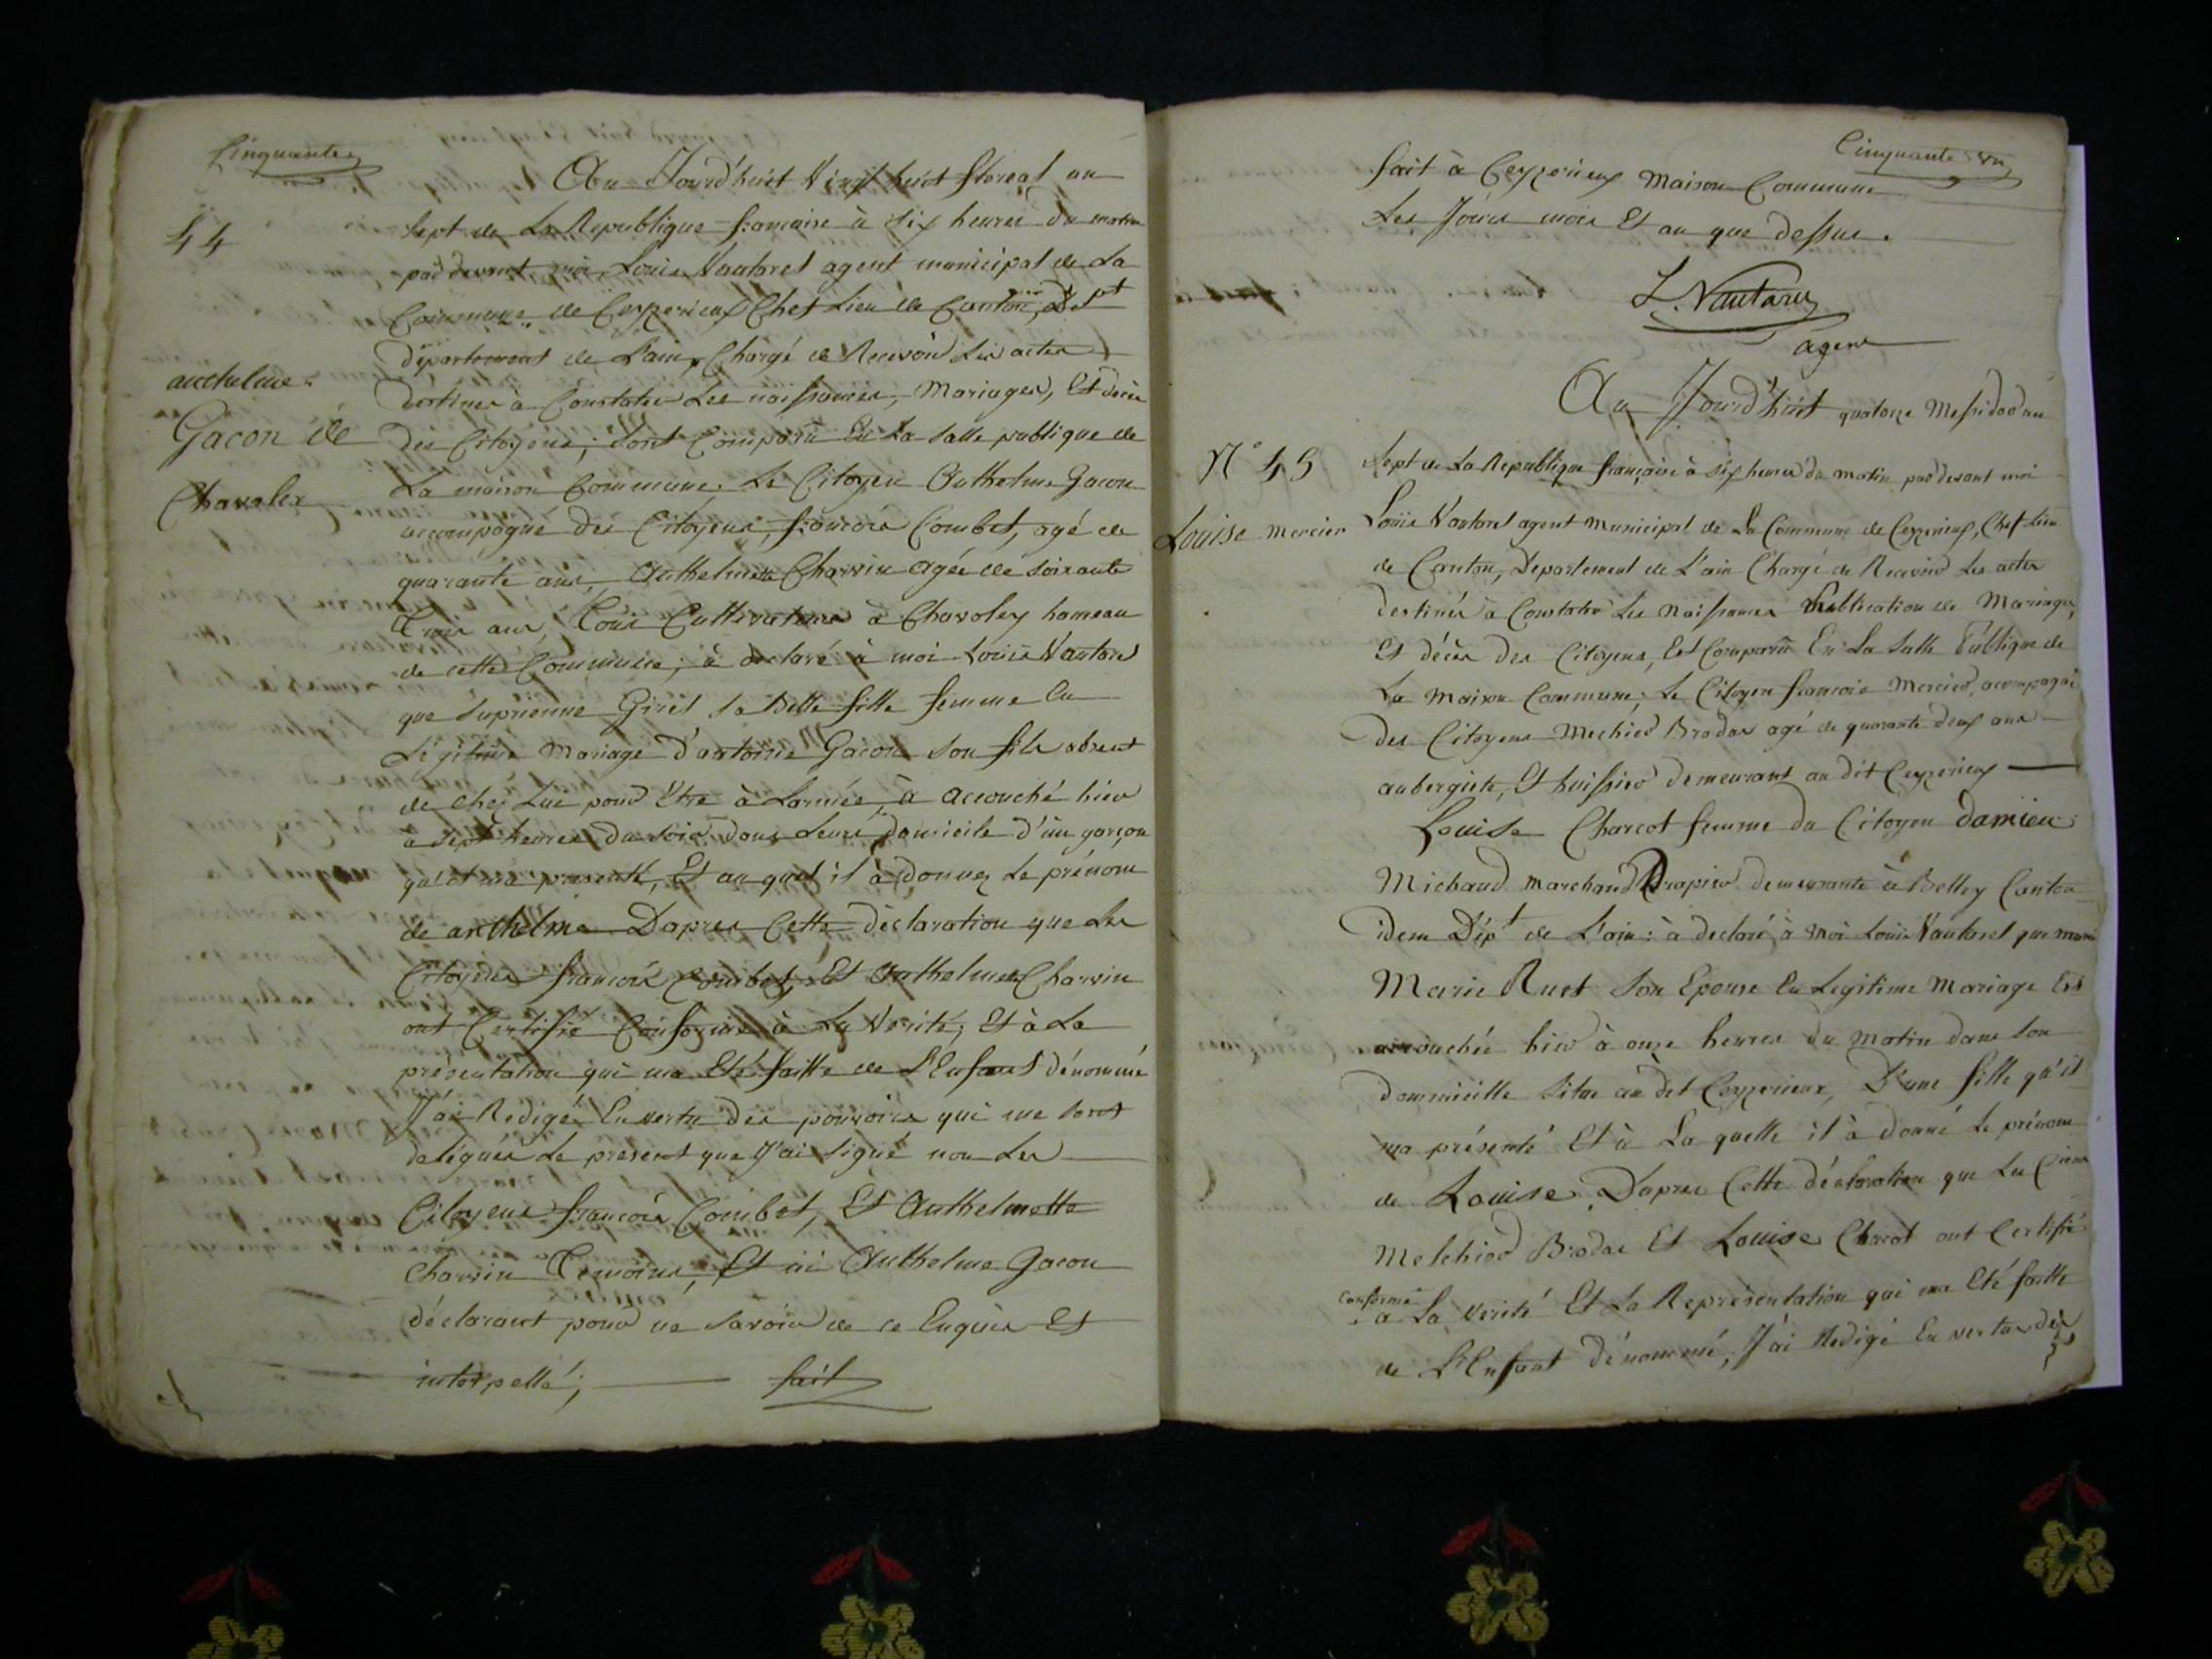 Cinquante
44
anthelme
Gacon de
Chavoley
Au Jourd'huit Vingt huit floreal an
Sept de La Republique francaise à six heures du matin
pardevant moi Louis Vautaret agent municipal de La
Commune de Ceyzerieux Chef Lieu de Canton, Dept
département de L'ain, Chargé de Recevoir Les actes
destines à Constater Les naissances, Mariages, Et decès
des Citoyens; sont Comparu En La Salle publique de
La maison Commune. Le Citoyen Anthelme Gacon
accompagné des Citoyens, francois Combet, agé de
quarante ans, Anthelmette Charvin agée de soixante
Trois ans, Tous Cultivateurs à Chavoley hameau
de cette Commune; à declaré à moi Louis Vautaret
que Suprienne Giret sa Belle fille femme En
Légitime Mariage D'antoine Gacon son fils absent
de chez Lui pour être à Larmée, à accouché hier
à sept heures du soir dans Leur domicile d'un garçon
qu'il ma presenté, Et au quel il à donnez Le prénom
de anthelme Dapres Cette déclaration que Les
Citoyens francois Combet, Et Anthelmette Charvin
ont Certifié Conforme à La Vérité, Et à La
présentation qui ma Eté faitte de L'Enfant dénommé
J'ai Redigé En vertu des pouvoirs qui me sont
delegués Le present que J'ai signé non Les
Citoyens francois Combet, Et Anthelmette
Charvin Temoins, Et ni Anthelme Gacon
déclarant pour ne savoir de ce Enquis Et
interpellé; fait
Cinquante un
fait à Ceyzerieux Maison Commune
Les Jours mois Et an que dessus.
L. Vautaret
agent
N° 45
Louise Mercier
Au Jourd'huit quatorze Messidor an
Sept de La Republique française à six heures du matin par devant moi
Louis Vautaret agent Municipal de La Commune de Ceyzerieux, Chef Lieu
de Canton, Département de L'ain Chargé de Recevoir Les actes
destinés à Constater Les Naissances Publication de Mariages,
Et décès des Citoyens, Est Comparu En La Salle Publique de
La Maison Commune; Le Citoyen francois Mercier, acompagné
des Citoyens Mechior Brodar agé de quarante deux ans
aubergiste, Et huissier demeurant au dit Ceyzerieux
Louise Charcot femme du Citoyen damien
Michaud Marchand Drapier demeurante à Belley Canton
idem Dépt de L'ain: à declaré à Moi Louis Vautaret que
Marie Ruet Son Epouse En Legitime Mariage Est
accouchée hier à onze heures du Matin dans Son
dommicille Situé au dit Ceyzerieux, D'une fille qu'il
ma présenté Et à La quelle il à donné Le prénom
de Louise. Dapres Cette déclaration que Les Ciens
Melchior Brodar Et Louise Charcot ont Certifié
conforme
à La Verité Et La Représentation qui ma Eté faitte
de L'Enfant dénommé, J'ai Redigé En vertu des